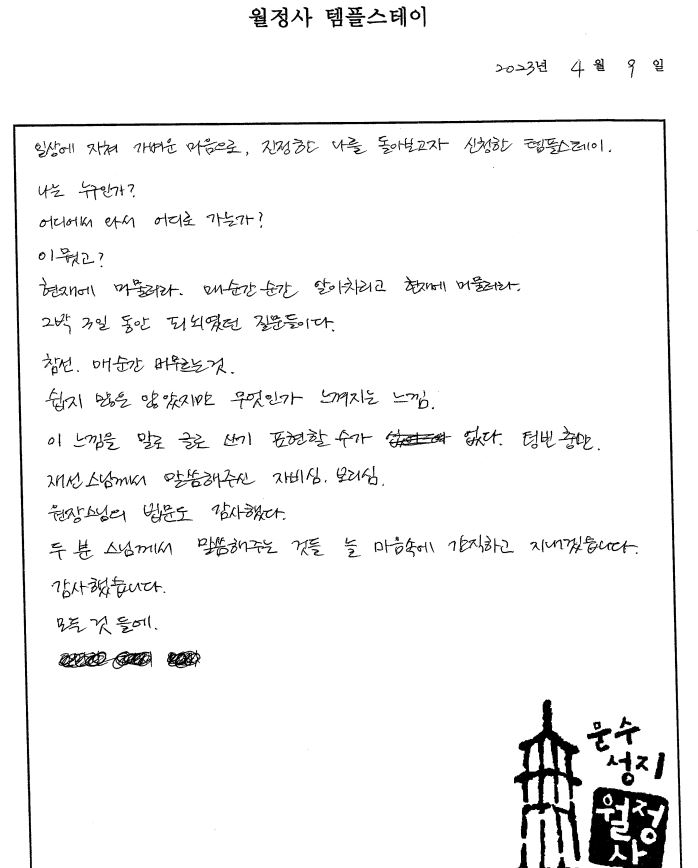 월정사 템플스테이
2023년 4월 9일
일상에 지쳐 가벼운 마음으로, 진정한 나를 돌아보고자 신청한 템플스테이.
나는 누구인가?
어디에서 와서 어디로 가는가?
이뭣고?
현재에 머물러라. 매순간 순간 알아차리고 현재에 머물러라.
2박 3일 동안 되뇌였던 질문들이다.
참선. 매순간 머무르는 것.
쉽지 많은 않았지만 무엇인가 느껴지는 느낌.
이 느낌을 말로 글로 쓰기 표현할 수가 없다. 텅빈 충만.
재선스님께서 말씀해주신 자비심. 보리심.
원장스님의 법문도 감사했다.
두 분 스님께서 말씀해주는 것들 늘 마음속에 간직하고 지내겠습니다.
감사했습니다.
모든 것 들에.
문수
성지
월정
사